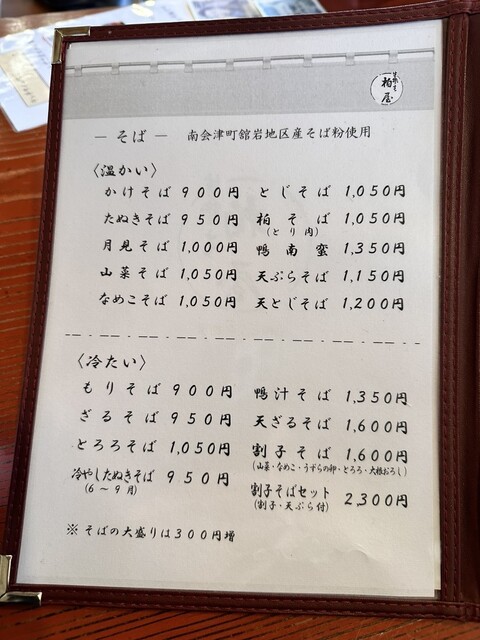 生そば
柏屋
― そば ― 南会津町舘岩地区産そば粉使用
〈温かい〉
かけそば 900円 とじそば 1,050円
たぬきそば 950円 柏そば 1,050円
(とり肉)
月見そば 1,000円 鴨南蛮 1,350円
山菜そば 1,050円 天ぷらそば 1,150円
なめこそば 1,050円 天とじそば 1,200円
〈冷たい〉
もりそば 900円 鴨汁そば 1,350円
ざるそば 950円 天ざるそば 1,600円
とろろそば 1,050円 割子そば 1,600円
(山菜・なめこ・うずらの卵・とろろ・大根おろし)
冷やしたぬきそば 950円 割子そばセット 2,300円
(6~9月) (割子・天ぷら付)
※そばの大盛りは300円増